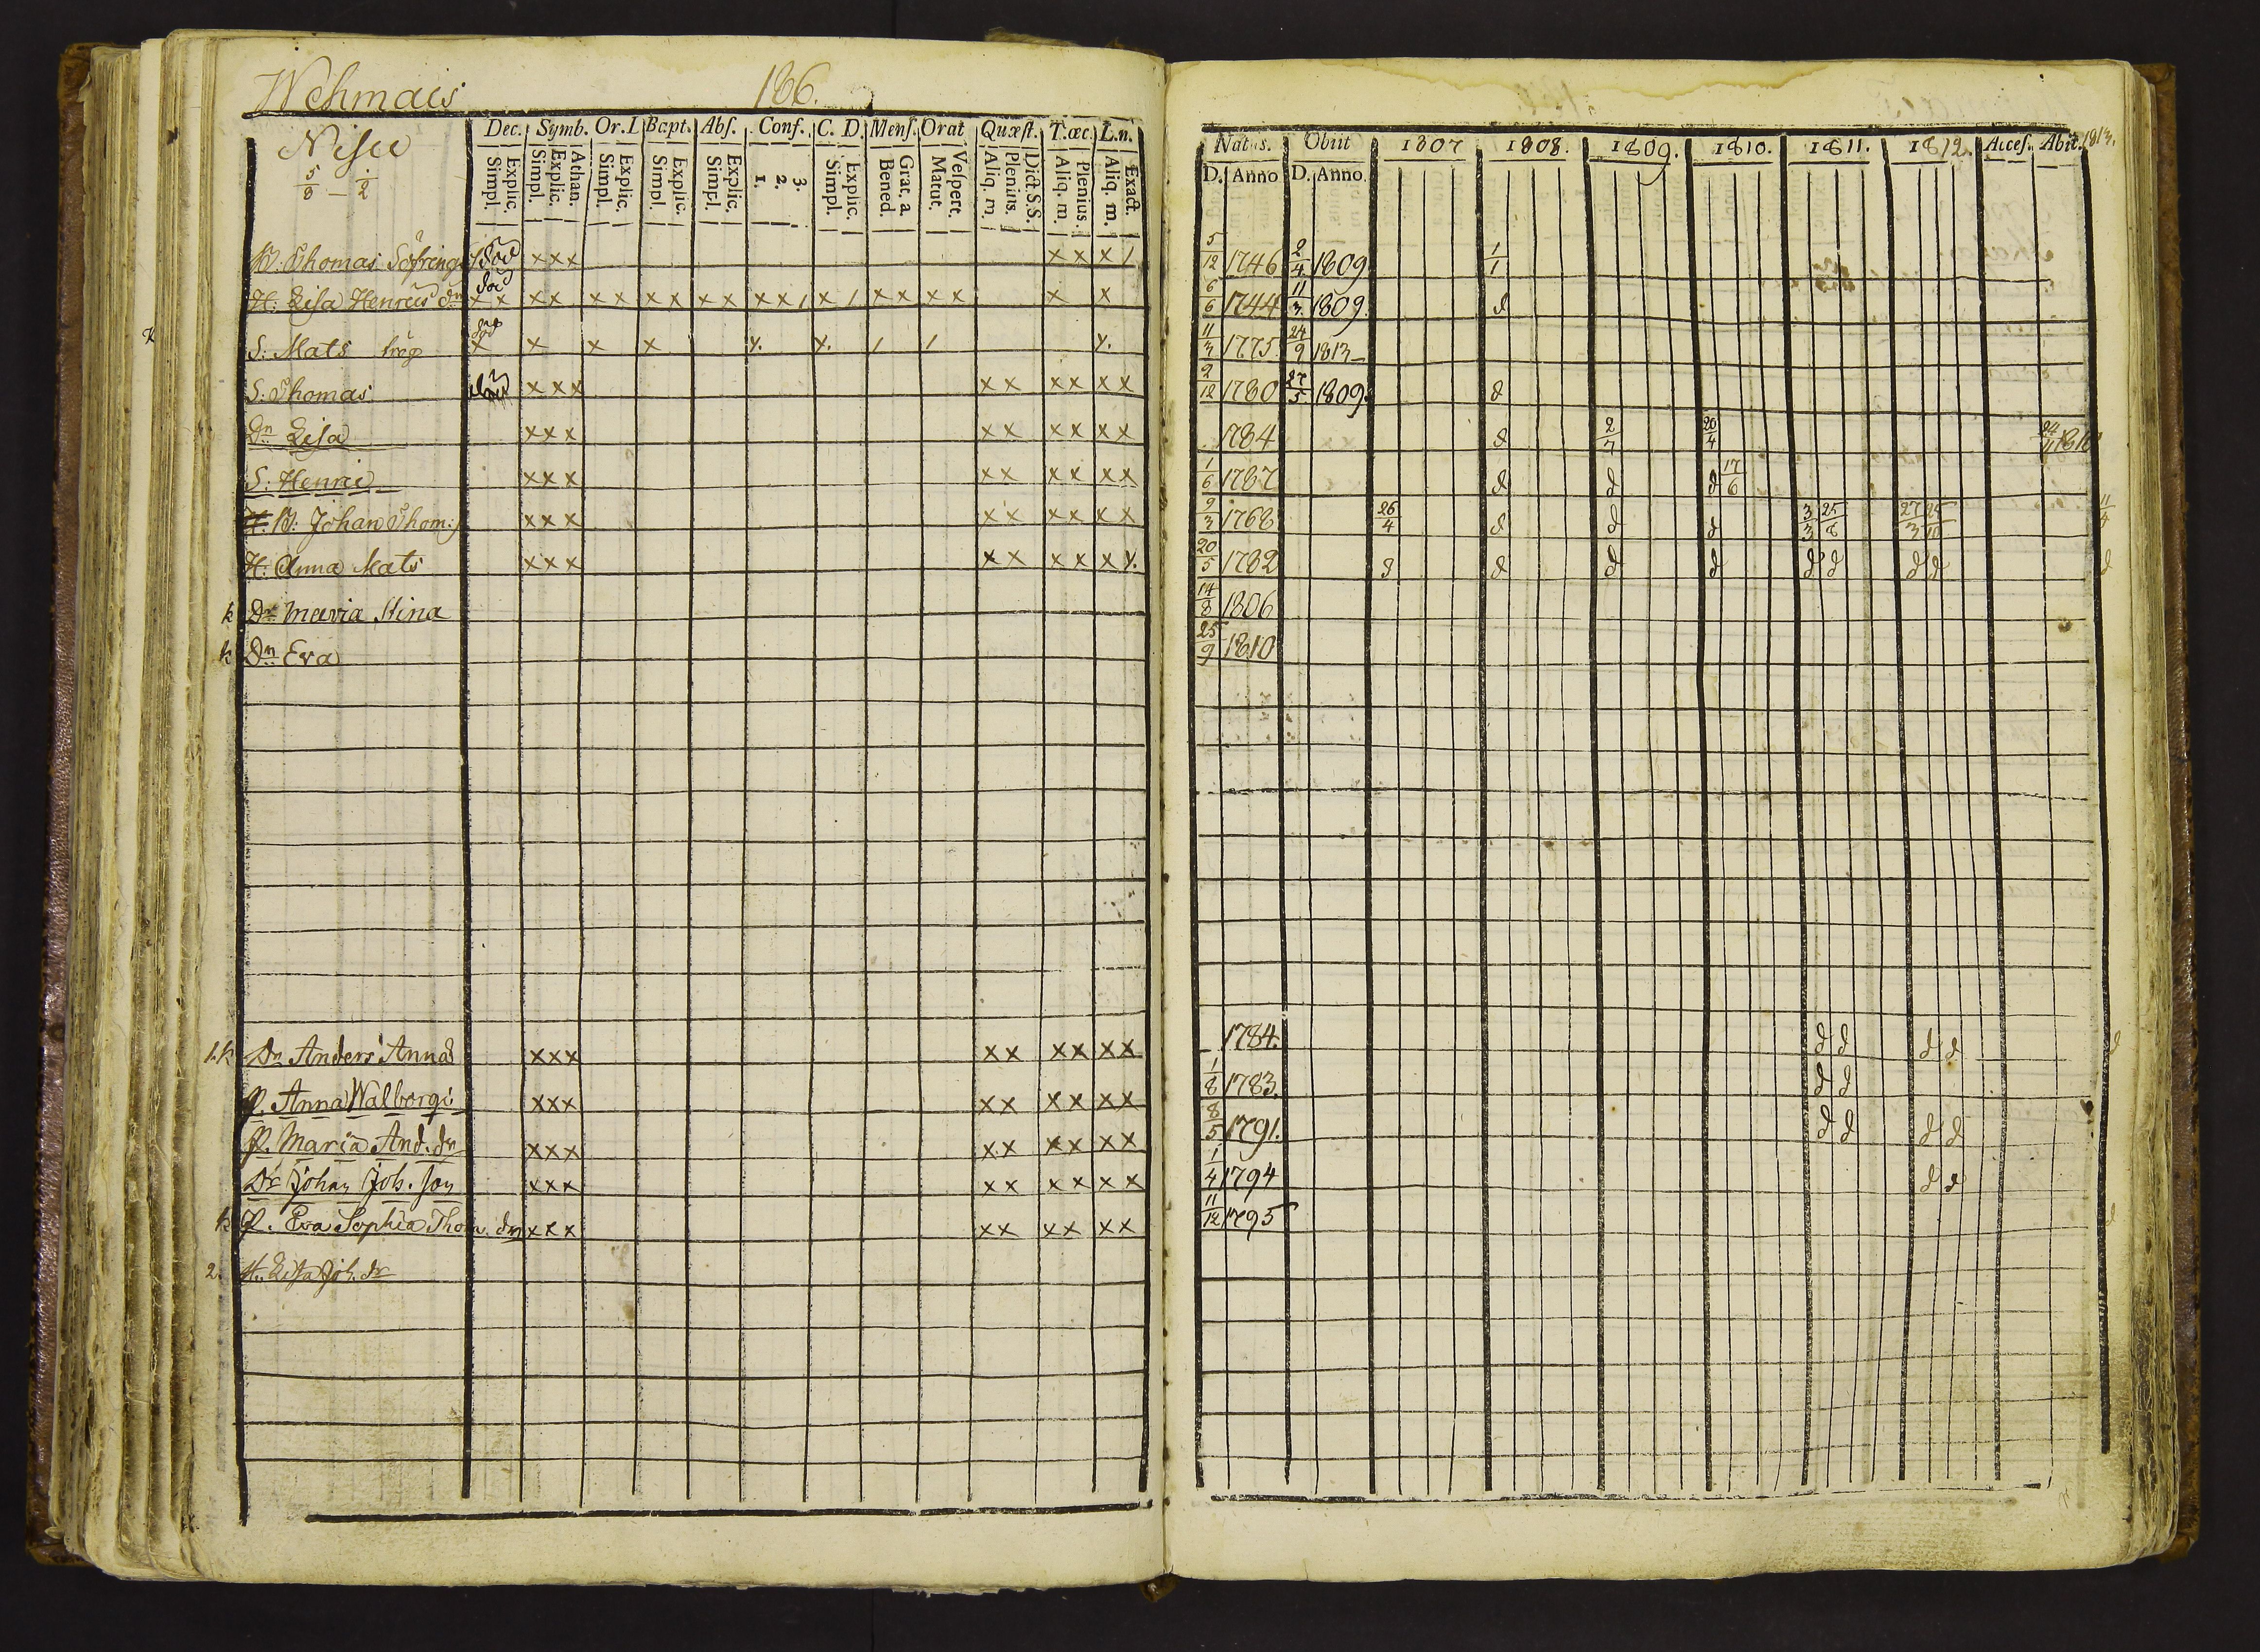 Wehmais 186.
Nisu
5/8 – 1/2
Dec. Symb. Or. D Bapt. Abs. Conf. C. D. Mens. Orat Quæst. T. œc. L. n.
Simpl. Explic. Simpl. Explic. Athan. Simpl. Explic. Simpl. Explic. Simpl. Explic. 1. 2. 3. Simpl. Explic. Bened. Grat. a. Matut. Vespert. Aliq. m. Plenius. Dict. S.S. Aliq. m. Plenius. Aliq. m. Exact.
B: Thomas död x x x x x x /
H: Lisa Henrics dr död x x x x x x x x x x x x / x / x x x x x x
S: Mats trög död x x x x y. y. / / y.
S: Thomas död x x x x x x x x x
Dr Lisa x x x x x x x x x
S: Henric x x x x x x x x x
B: Johan Thom: x x x x x x x x x
H: Anna Mats x x x x x x x x y.
k Dr Maria Stina
k Dr Eva
1. k Dr Anders x x x x x x x x x
P. Anna Walborg x x x x x x x x x
P. Maria And. dr x x x x x x x x x
Dr Johan Joh. son x x x x x x x x x
k P. Eva Sophia Thom. dr x x x x x x x x x
2. H. Lisa Joh. dr
Natus. Obiit 1807 1808. 1809. 1810. 1811. 1812. Acces. Abit. 1813.
D. Anno D. Anno.
5/12 1746 2/4 1809 1/1
6/6 1744 11/3 1809. d
11/3 1775. 24/9 1813–
2/12 1780 27/5 1809. d
1784 d 2/7 20/4 1810
1/6 1787 d d d 17/6
9/3 1768 26/4 d d d 3/3 25/8 27/3 25/10 11/4
20/5 1782 d d d d d d d d d
14/8 1806
25/9 1810
1784. d d d d d
1/8 1783. d d
8/5 1791. d d d d
1/4 1794 d d
11/12 1795 d